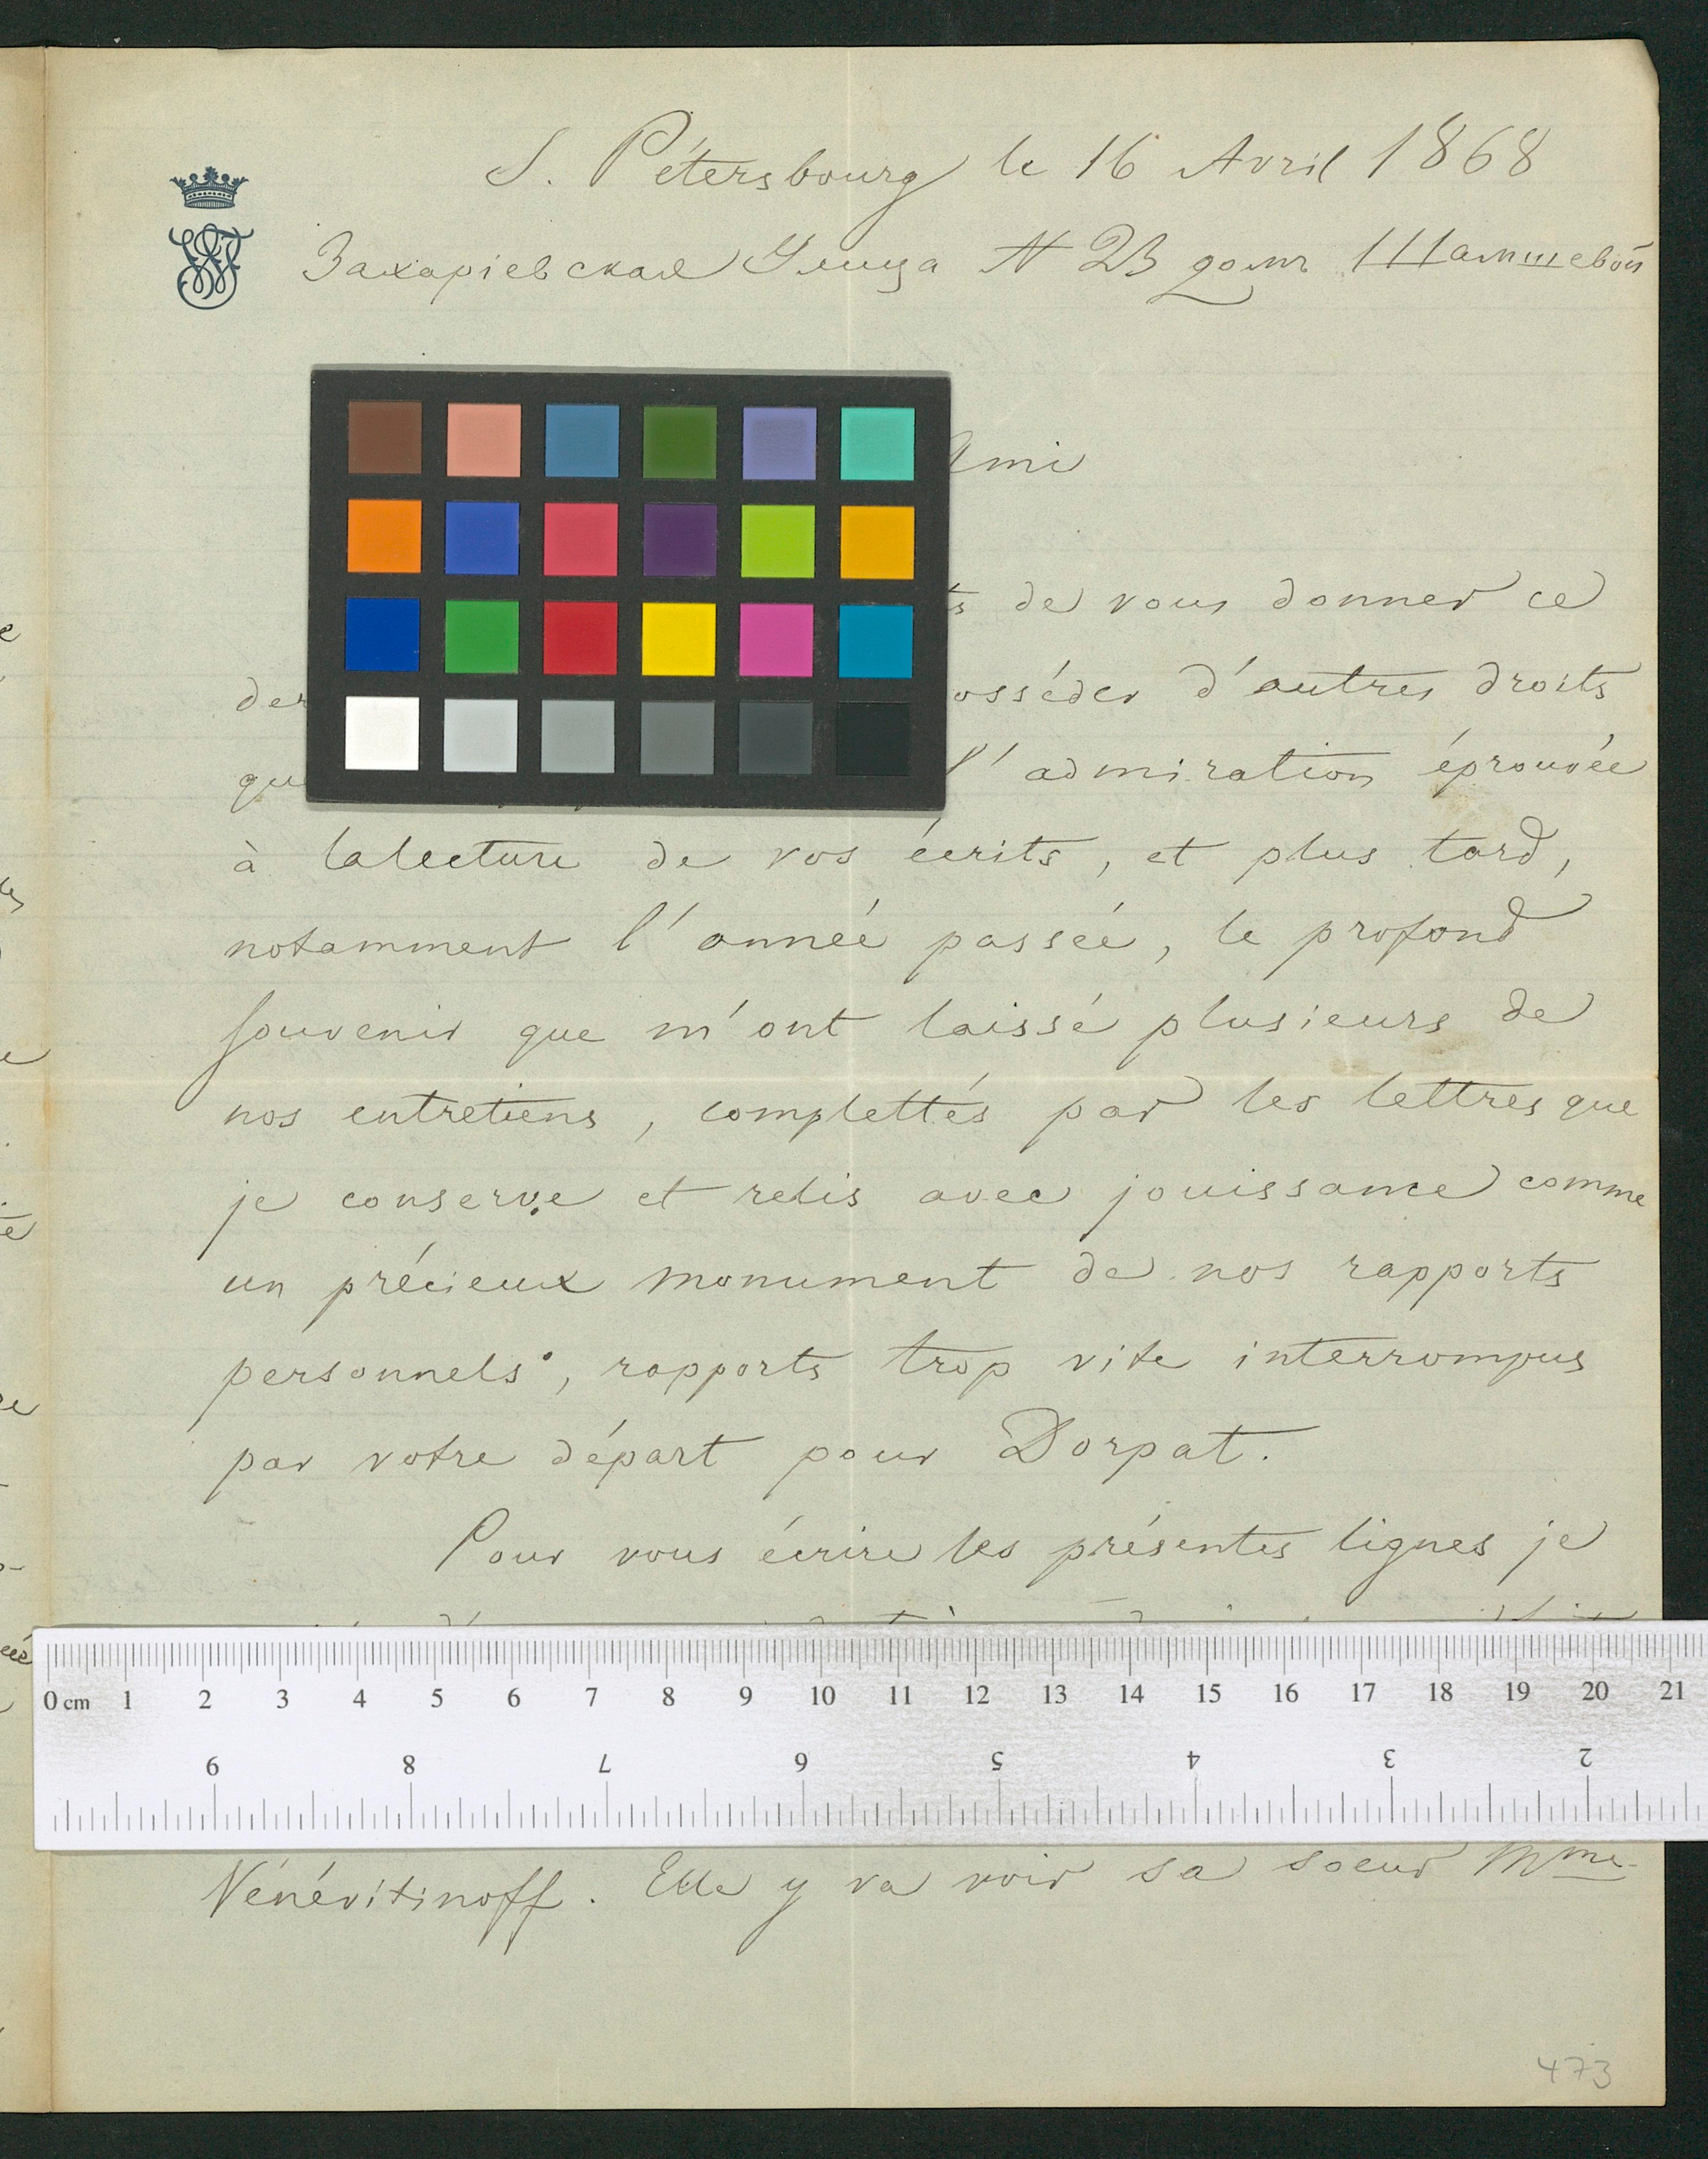 S. Pétersbourg le 16 Avril 1868
Захаріевская Улица N 23 домъ Шамшевой
Ami
de vous donner ce
der osséder d'autres droits
que l'admiration éprouvée
à lalecture de vos écrits, et plus tard,
notamment l'année passée, le profond
souvenir que m'ont laissé plusieurs de
nos entretiens, complettés par les lettres que
je conserve et relis avec jouissance comme
un précieux monument de nos rapports
personnels, rapports trop vite interrompus
par votre départ pour Dorpat.
Pour vous écrire les présentes lignes je
0 cm 1 2 3 4 5 6 7 8 9 10 11 12 13 14 15 16 17 18 19 20 21
9 8 7 6 5 4 3 2
Vénévitinoff. Elle y va voir sa soeur Mme
473